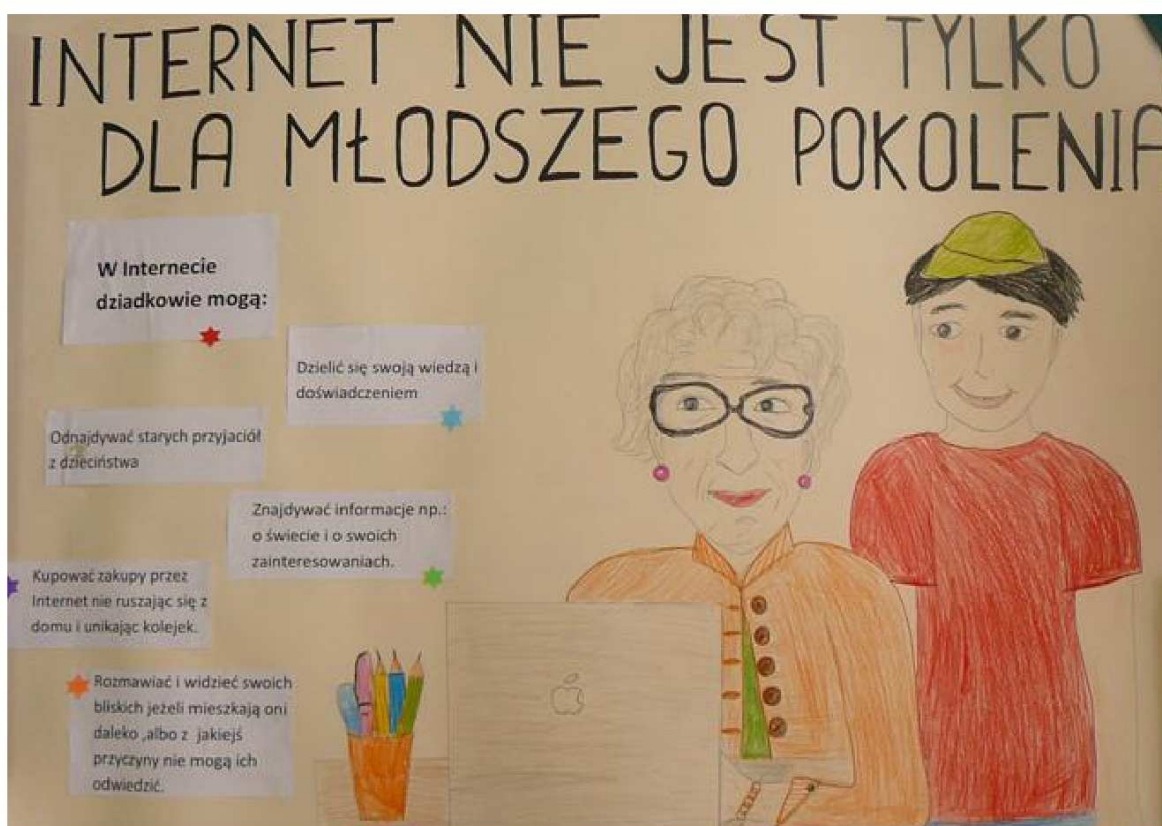 INTERNET NIE JEST TYLKO
DLA MŁODSZEGO POKOLENIA
W Internecie
dziadkowie mogą:
Dzielić się swoją wiedzą i
doświadczeniem
Odnajdywać starych przyjaciół
z dzieciństwa
Znajdywać informacje np.:
o świecie i o swoich
zainteresowaniach.
Kupować zakupy przez
Internet nie ruszając się z
domu i unikając kolejek.
Rozmawiać i widzieć swoich
bliskich jeżeli mieszkają oni
daleko ,albo z jakiejś
przyczyny nie mogą ich
odwiedzić.